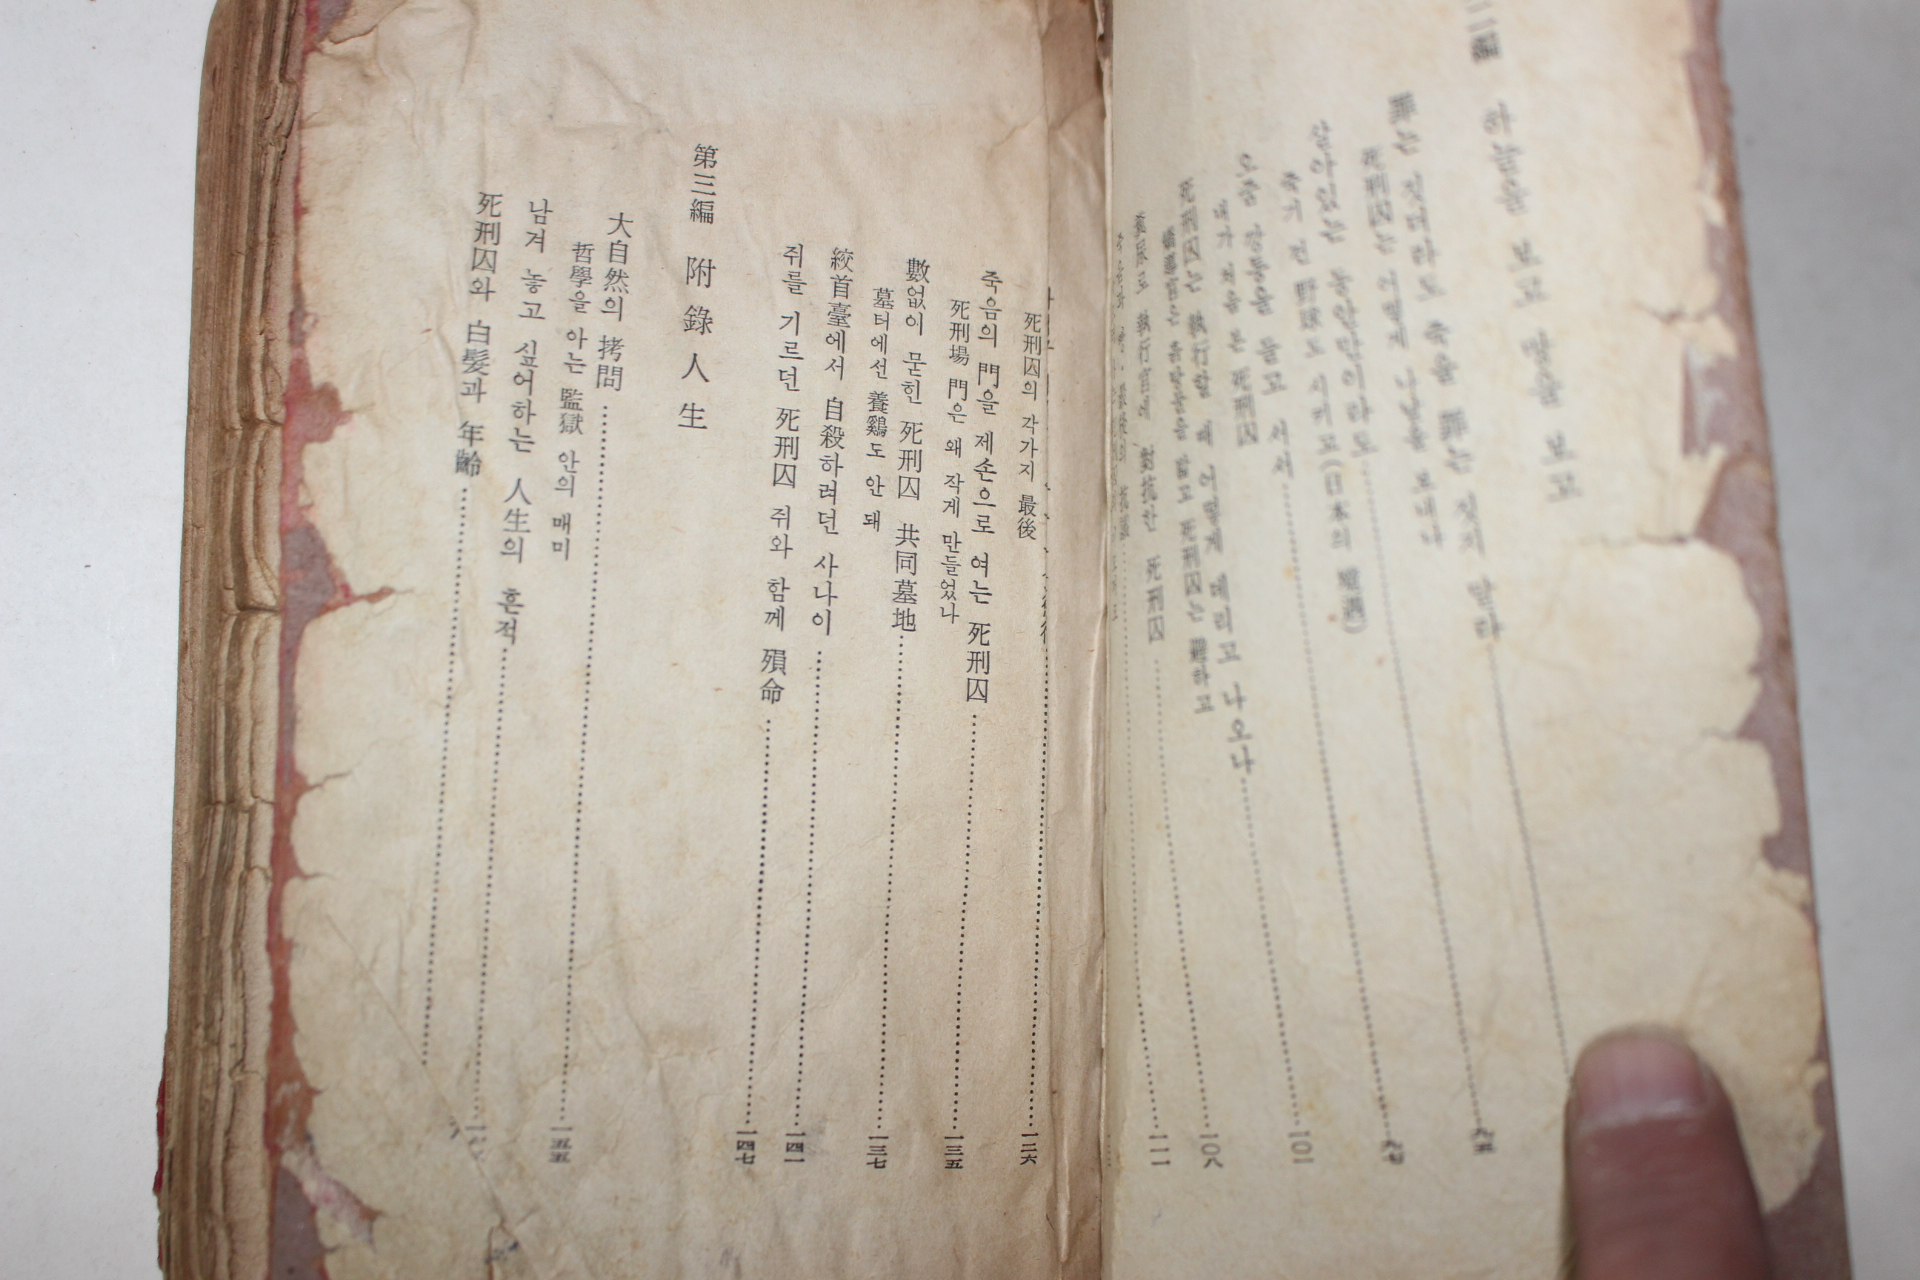 二編 하늘을 보고 땅을 보고
罪는 짓더라도 죽을 罪는 짓지 말라 九五
死刑囚는 어떻게 나날을 보내나
살아있는 동안만이라도 九七
죽기 전 野球도 시키고(日本의 境遇)
오줌 깡통을 들고 서서 一〇一
내가 처음 본 死刑囚
死刑囚는 執行할 때 어떻게 데리고 나오나 一〇八
死刑囚는
執行官에 對抗한 死刑囚 一一一
死刑囚의 각가지 最後 一二六
죽음의 門을 제손으로 여는 死刑囚 一三五
死刑場 門은 왜 작게 만들었나
數없이 묻힌 死刑囚 共同墓地 一三七
墓터에선 養鷄도 안 돼
絞首臺에서 自殺하려던 사나이 一四一
쥐를 기르던 死刑囚 쥐와 함께 殞命 一四七
第三編 附錄人生
大自然의 拷問 一五五
哲學을 아는 監獄 안의 매미
남겨 놓고 싶어하는 人生의 흔적
死刑囚와 白髮과 年齡